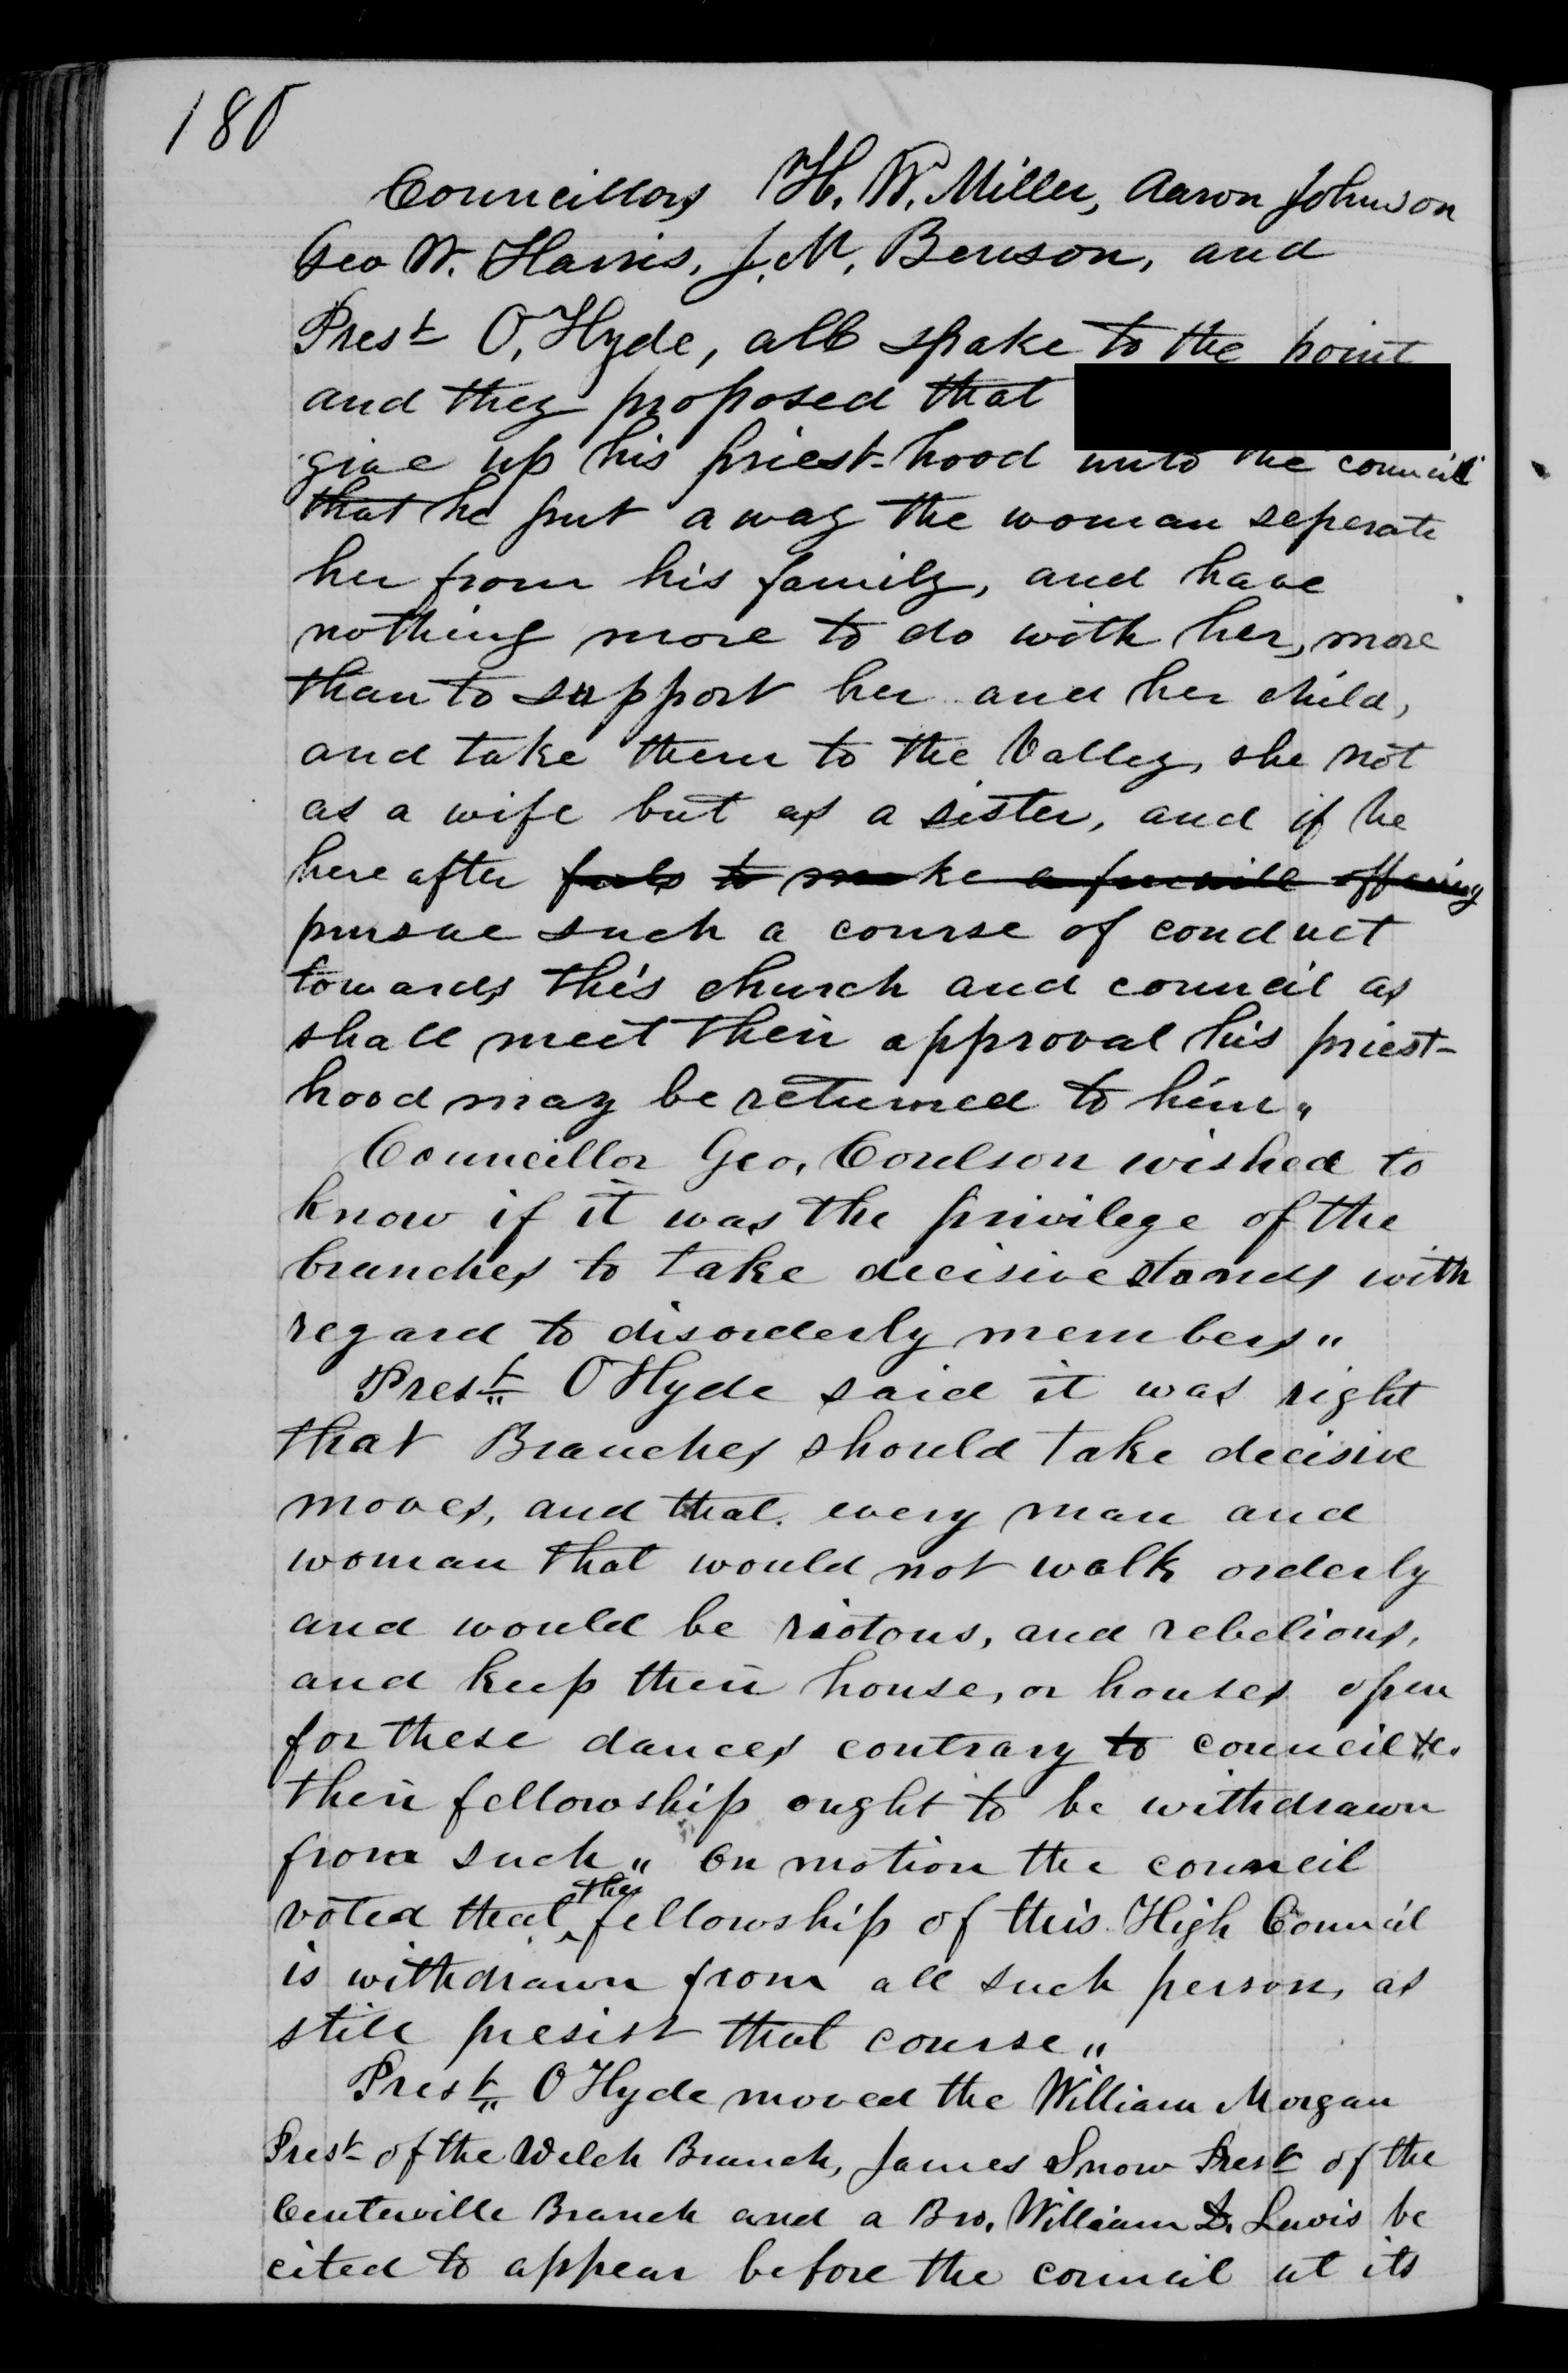 180
Councillors H. W. Miller, Aaron Johnson
Geo W. Harris, J. M. Benson, and
Prest O, Hyde, all spake to the point
and they proposed that
give up his priest-hood unto the council
that he put away the woman seperate
her from his family, and have
nothing more to do with her, more
than to support her and her child,
and take them to the Valley, she not
as a wife but as a sister, and if he
here after to make a offering
pursue such a course of conduct
towards this church and council as
shall meet their approval his priest-
hood may be returned to him"
Councillor Geo, Coulson wished to
know if it was the privilege of the
branches to take decisive stands with
regard to disorderly members"
Prest O Hyde said it was right
that Branches should take decisive
moves, and that every man and
woman that would not walk orderly
and would be riotous, and rebelious,
and keep their house, or houses open
for these dances contrary to council &c.
their fellowship ought to be withdrawn
from such" On motion the council
voted that the fellowship of this High Council
is withdrawn from all such persons, as
still presist that course"
Prest O Hyde moved the William Morgan
Prest of the Welch Branch, James Snow Prest of the
Centerville Branch and a Bro. William Lewis be
cited to appear before the council at its